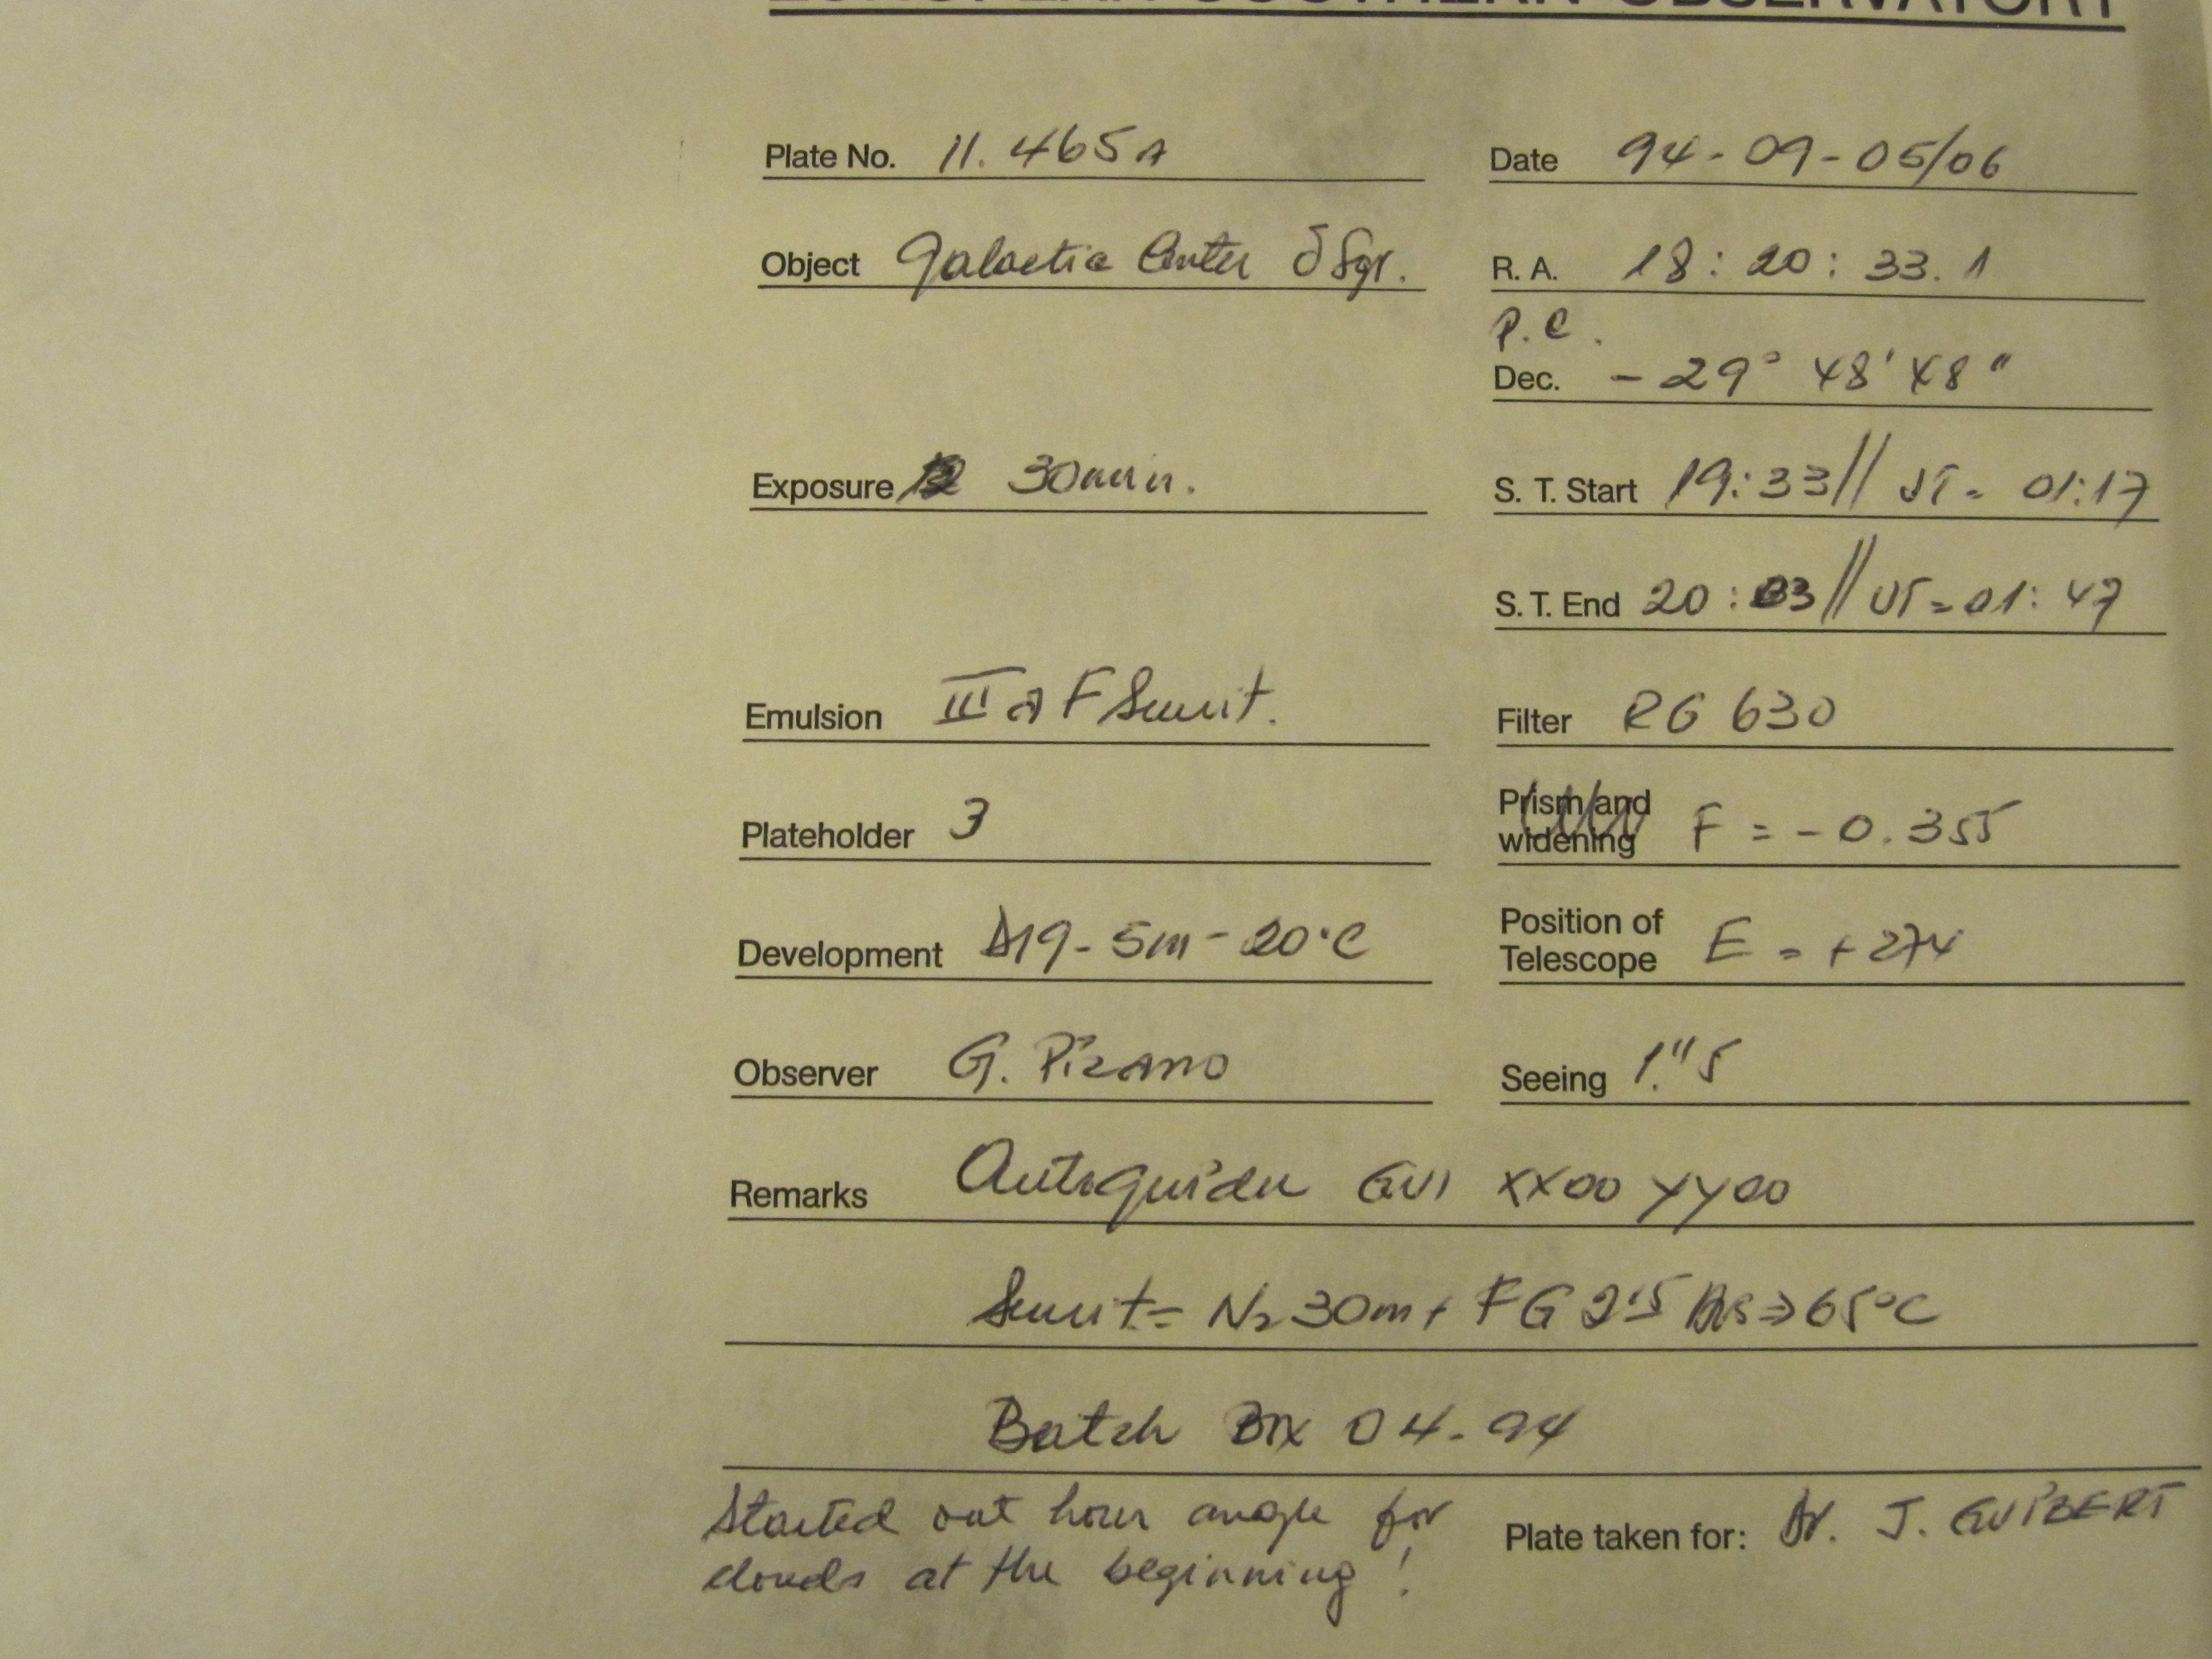 EUROPEAN SOUTHERN OBSERVATORY
Plate No. 11.465A
Date 94-09-05/06
Object Galactic Center δ Sgr.
R. A. 18: 20: 33. 1
P.C.
Dec. - 29° 48' 48"
Exposure 30min.
S. T. Start 19:33// UT= 01:17
S. T. End 20:03// UT=01:47
Emulsion III a F Sensit.
Filter RG 630
Plateholder 3
Prism and widening F = -0.355
Development D19- 5m- 20°C
Position of Telescope E = +274
Observer G. Pizarro
Seeing 1."5
Remarks Autoguider GVI XX00 YY00
Sensit= N2 30m+ FG 2h5 Hrs⇒65°C
Batch Box 04-94
Started out hour angle for
clouds at the beginning!
Plate taken for: Dr. J. GUIBERT